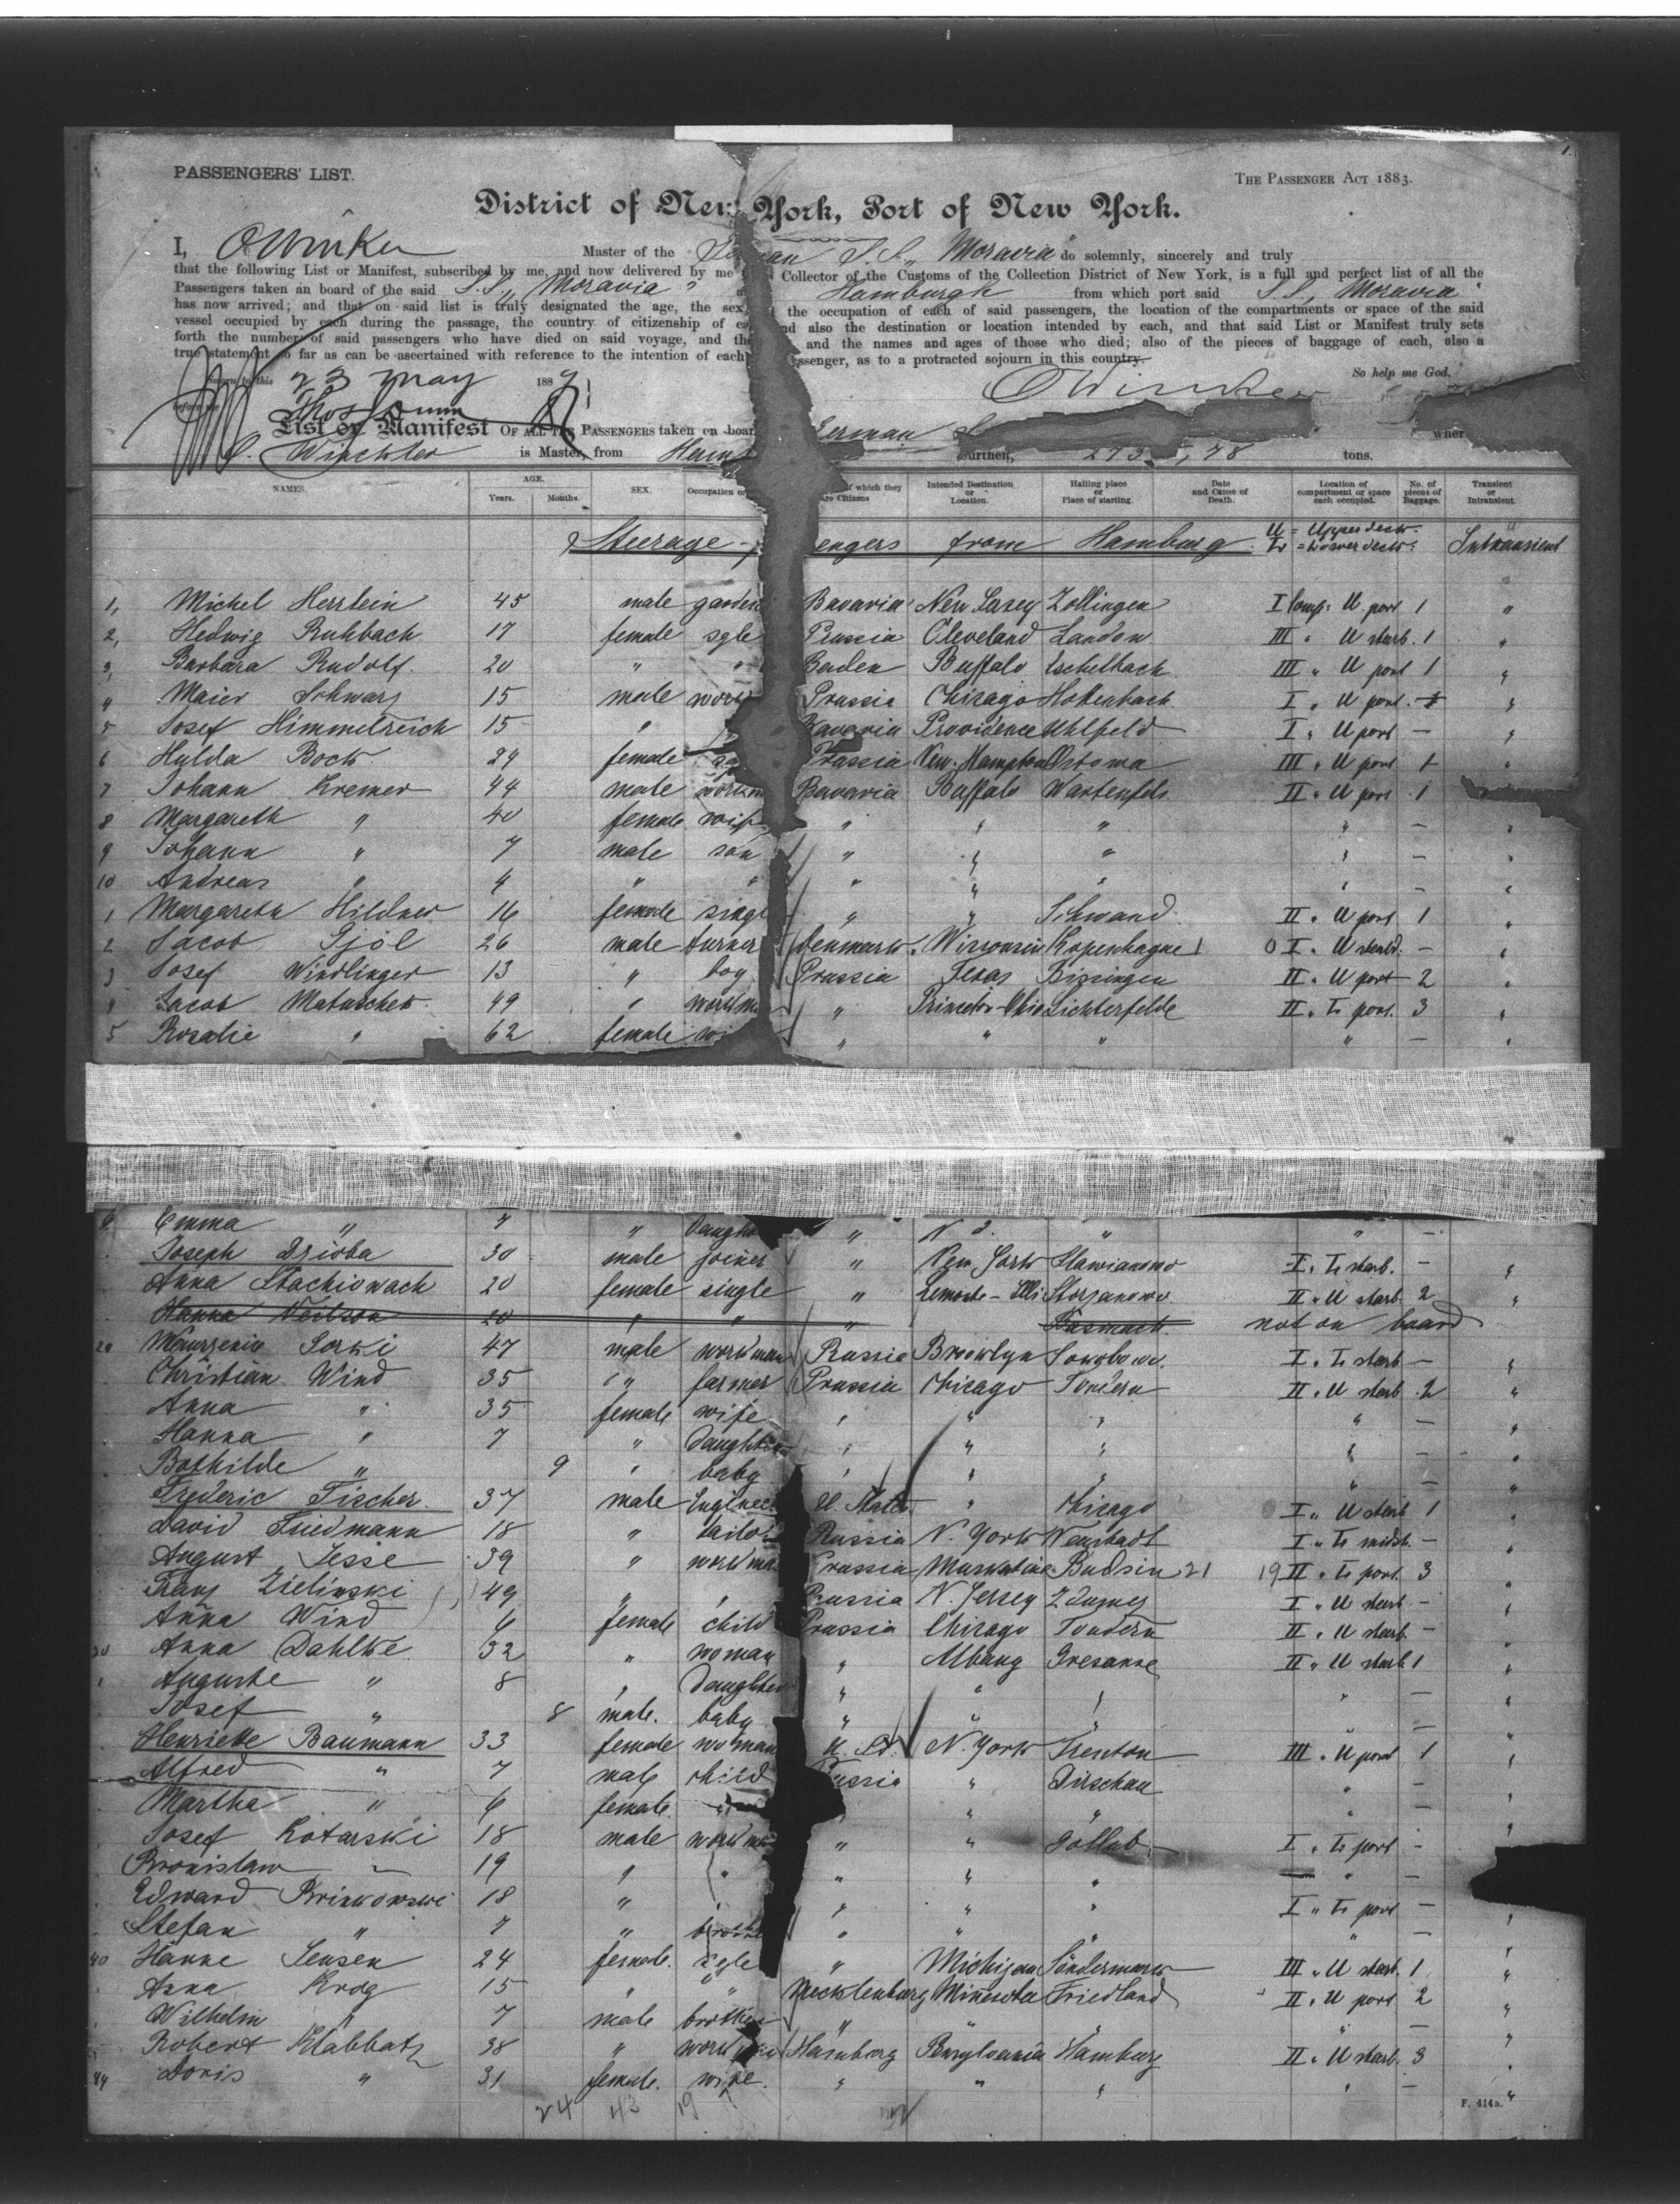 1.
PASSENGERS' LIST.
THE PASSENGER ACT 1883.
District of New York, Port of New York.
I, O Winkler Master of the German S.S. "Moravia" do solemnly, sincerely and truly
that the following List or Manifest, subscribed by me, and now delivered by me Collector of the Customs of the Collection District of New York, is a full and perfect list of all the
Passengers taken an board of the said S.S. "Moravia" Hamburgh from which port said S.S. "Moravia"
has now arrived; and that on said list is truly designated the age, the sex the occupation of each of said passengers, the location of the compartments or space of the said
vessel occupied by each during the passage, the country of citizenship of and also the destination or location intended by each, and that said List or Manifest truly sets
forth the number of said passengers who have died on said voyage, and the and the names and ages of those who died; also of the pieces of baggage of each, also a
true statement so far as can be ascertained with reference to the intention of each passenger, as to a protracted sojourn in this country.
So help me God.
Sworn to this 23 May 188
O Winkler
List or Manifest OF ALL THE PASSENGERS taken on board German
Winckler is Master, from burthen, tons.
NAMES. AGE. Years. Months. SEX. Occupation of which they are Citizens Intended Destination or Location. Hailing place or Place of starting. Date and Cause of Death. Location of compartment or space each occupied. No. of pieces of Baggage. Transient or Intransient.
Steerage engers from Hamburg U = Upper deck. = Lower deck. Intransient
1, Michel Herrlein 45 male garden Bavaria New Jersey Zollingen I Comp. U port 1 "
2, Hedwig Ruhbach 17 female sgle Prussia Cleveland Landow III " U starb. 1 "
3, Barbara Rudolf. 20 " " Baden Buffalo Eschelbach III " U port 1 "
" Maier Schwarz 15 male work Prussia Chicago Hottenbach I " U port. "
5 Josef Himmelreich 15 " Bavaria Providence Uhlfeld I " U port - "
6 Hulda Bock 29 female Prussia New. Hampton Ostowa III " U port 1 "
7 Johann Kremer 44 male workm Bavaria Buffalo Wartenfels II " U port 1
8 Margareth " 40 female wife " " " " - "
9 Johann " 7 male son " " " " - "
10 Andreas " 4 " " " " " " - "
1 Margareth Hildner 16 female single " " Schwand II " U port 1 "
2 Jacob Gjöl 26 male turner Denmark Wisconsin Kopenhagne I " U starb. - "
3 Josef Windlinger 13 " boy Prussia Texas Bizingen II " U port 2 "
Jacob Matuschek 49 " workman " Princeton-Ohio Lichterfelde II " port. 3 "
5 Rosalie " 62 female wi " " " " - "
6 Emma " 7 " Daught " " " -
Joseph Dzioba 30 male joiner " New York Slawianowo I " starb. - "
Anna Stachiowach 20 female single " Lemonte - Illi Storzanowo II " U starb. 2 "
Hanna Neilson 20 " " " Denmark not on board
20 Sorki 47 male workman Russia Brooklyn I " starb - "
Christian Wind 35 " farmer Prussia Chicago Tondern II " U starb 2 "
Anna " 35 female wife " " " " - "
Hanna " 7 " Daughter " " " " - "
Bothilde " 9 " baby " " " " - "
Frederic Fischer. 37 male Engineer U. States " Chicago I " U starb 1 "
David Friedmann 18 " tailor Russia N. York Neustadt I " midsh. - "
August Jesse 39 " workman Prussia Muskatine Budsin 21 19 II " port. 3 "
Franz Zielinski 49 " " Russia N. Jersey I " U starb. - "
Anna Wind 6 female child Prussia Chicago Tondern II " U starb. - "
30 Anna Dahlke 32 " woman " Albany Gresanse II " U starb 1 "
1 Auguste " 8 " Daughter " " " " - "
Josef " 8 male. baby " " " -
Henriette Baumann 33 female woman U. St. N. York Trenton III " U port 1 "
Alfred " 7 male child Russia " Dirschau " - "
Martha " 6 female " " " " -
Josef Kotarski 18 male workman " " Gollub I " port - "
Bronislaw 19 " " " " " " -
Edward Brinkowski 18 " " " " " I " port -
Stefan " 7 " brother " " " " - "
40 Hanne Jensen 24 female. sgle " Michigan Söndermark III " U starb. 1 "
Anna Krog 15 " " Mecklenburg Minnesota Friedland II " U port 2 "
Wilhelm " 7 male brother " " " " - "
Robert Klabbatz 38 " workman Hamburg Pensylvania Hamburg II " U starb. 3 "
44 Doris " 31 female. wife. " " " " - "
24 43 19
F. 414a.